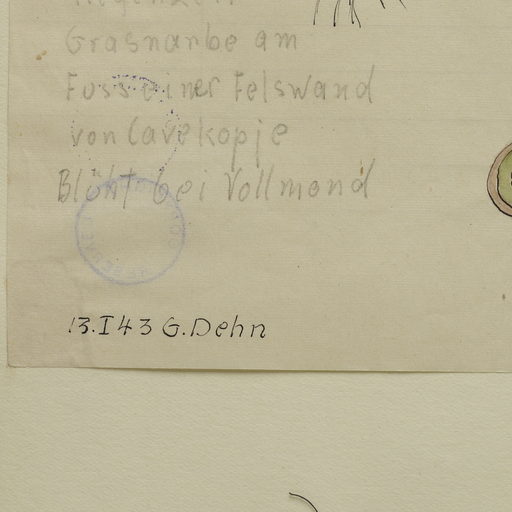 Grasnarbe am
Fuss einer Felswand
von Cavekopje
Blüht bei Vollmond
13.I 43 G.Dehn